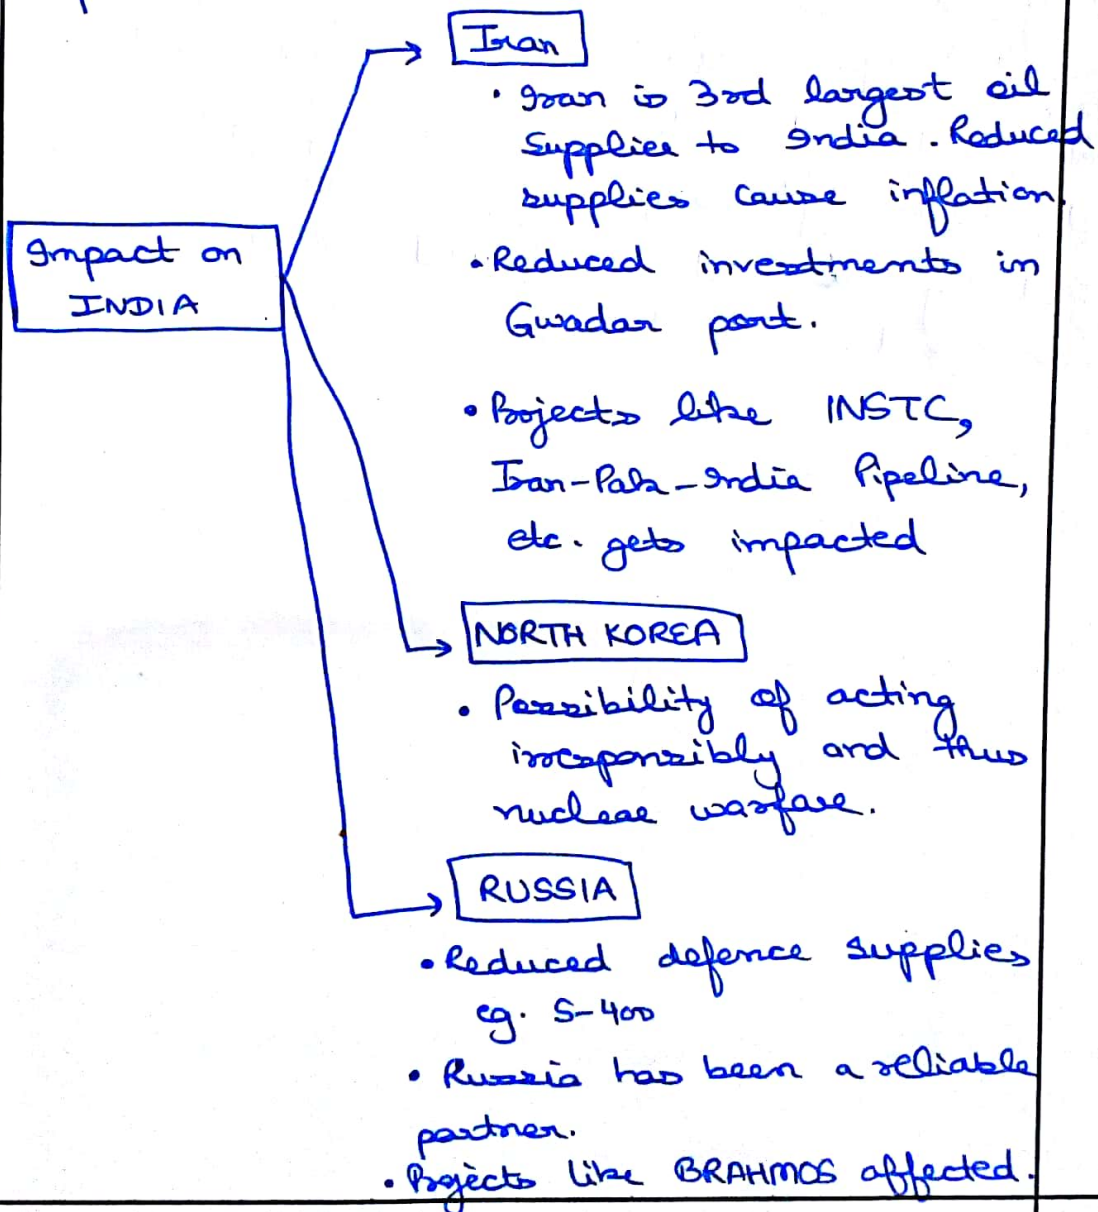 Iran
• Iran is 3rd largest oil
supplier to India. Reduced
supplies cause inflation.
Impact on
INDIA
• Reduced investments in
Gwadar port.
• Projects like INSTC,
Iran-Pak-India Pipeline,
etc. gets impacted
NORTH KOREA
• Possibility of acting
irresponsibly and thus
nuclear warfare.
RUSSIA
• Reduced defence supplies
eg. S-400
• Russia has been a reliable
partner.
• Projects like BRAHMOS affected.